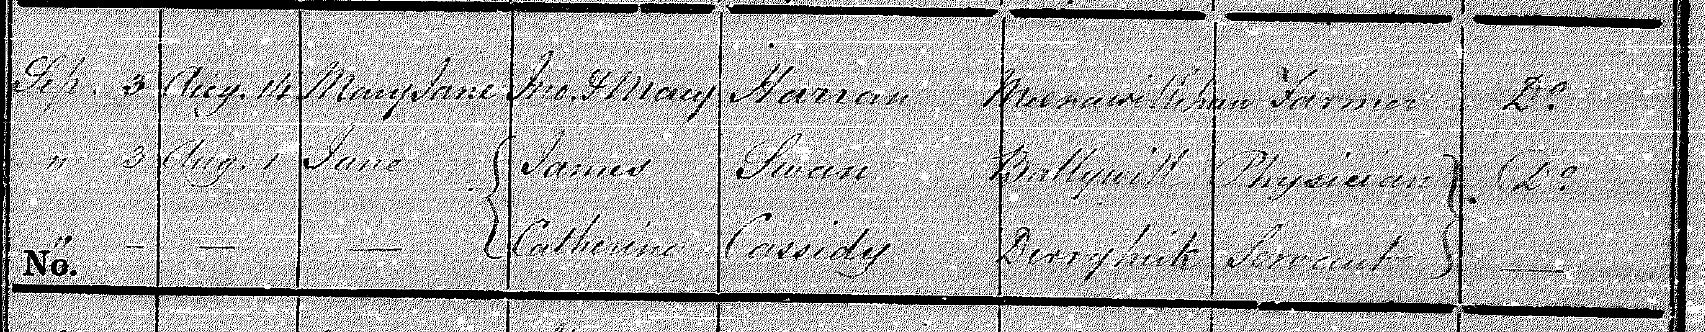 Sep. 3 Aug. 14 Mary Jane Jno. & Mary Harran Farmer Do
" 3 Aug. 1 Jane { James Swan Physician } Do
" — — — Catherine Cassidy Servant —
No.